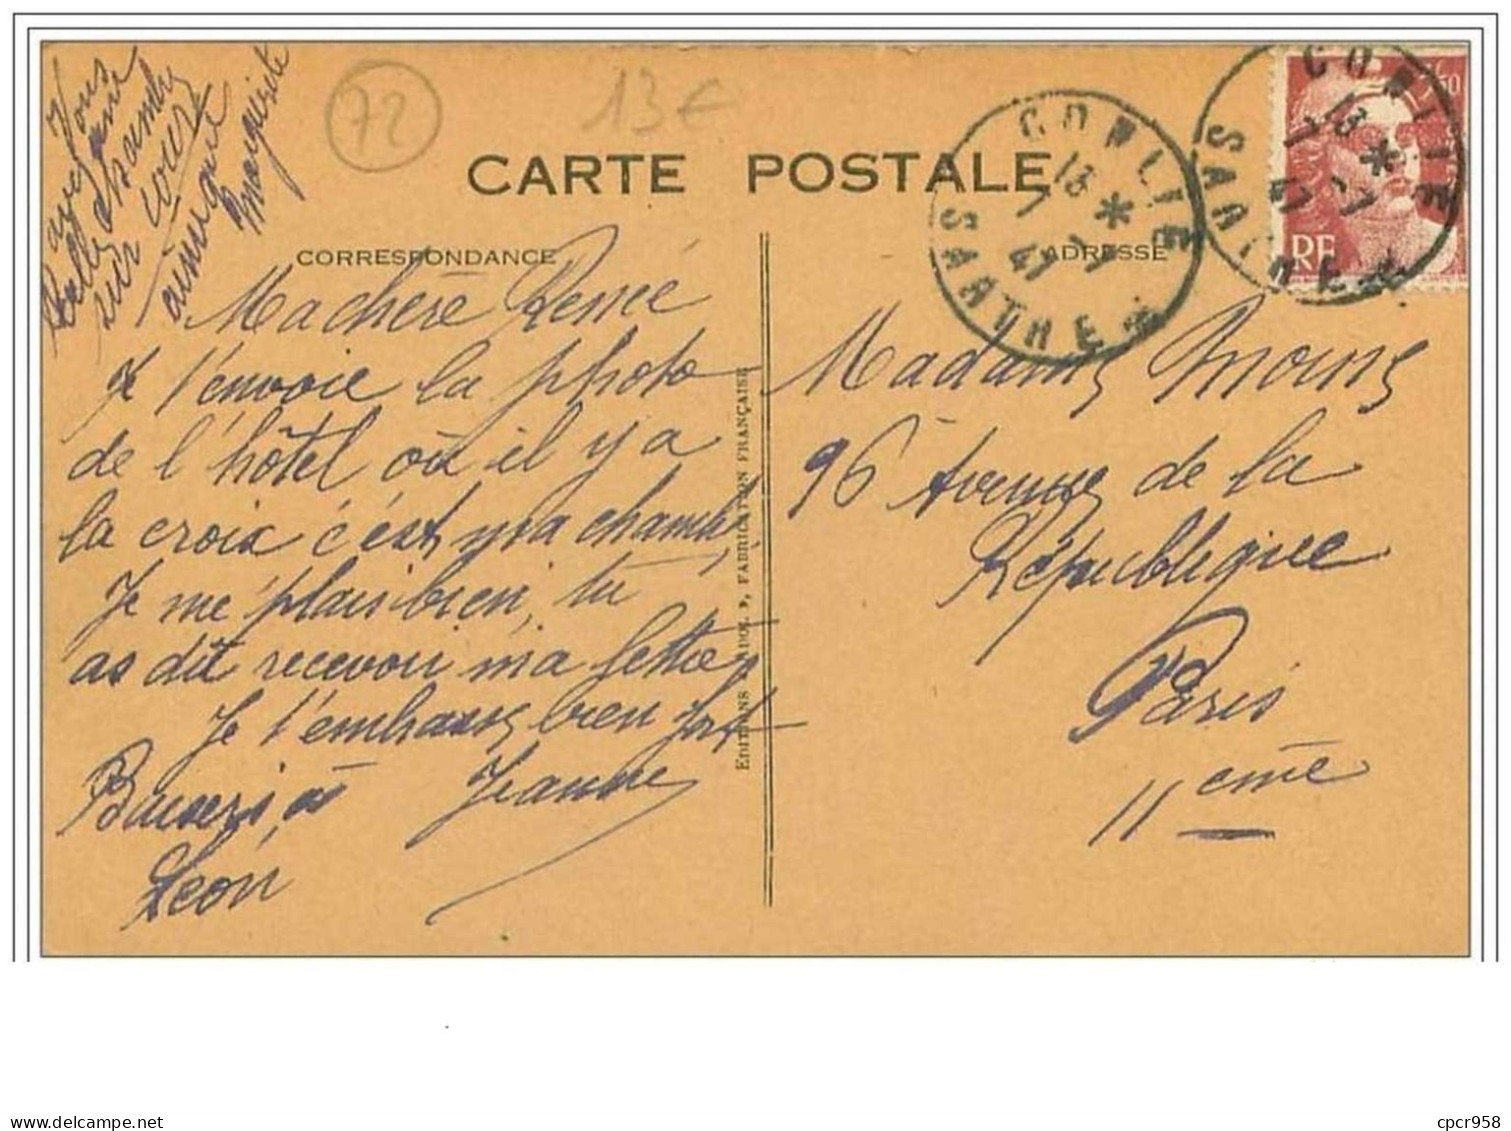 Vous
avez une
belle chambre
sur cour
ainsi que
Marguerite
72
13 €
CARTE POSTALE
CORRESPONDANCE
ADRESSE
CONLIE
13 *
7-7
47
SARTHE *
CONLIE
13 *
7-7
47
SARTHE *
4f50
RF
Ma chère Renée
Je t'envoie la photo
de l'hôtel où il y a
la croix c'est ma chambre,
Je me plais bien, tu
as dû recevoir ma lettre,
Je t'embrasse bien fort
Baisers à Jeanne
Léon
EDITIONS P, FABRICATION FRANÇAISE
Madame
96 Avenue de la
République
Paris
11 ème
cpcr958